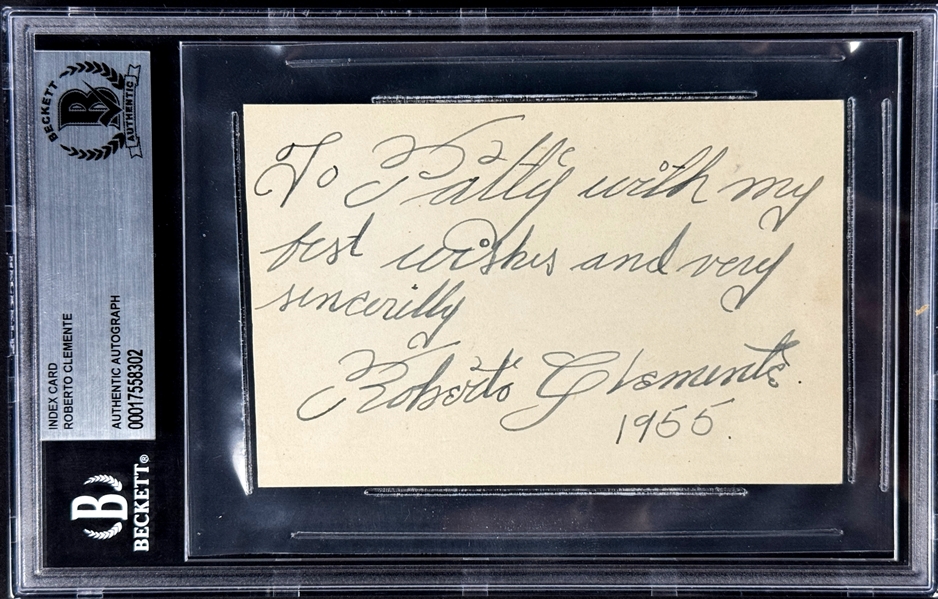 BECKETT
AUTHENTIC
B
INDEX CARD
ROBERTO CLEMENTE
AUTHENTIC AUTOGRAPH
00017558302
B
BECKETT®
To Patty with my
best wishes and very
sincerilly
Roberto Clemente.
1955.